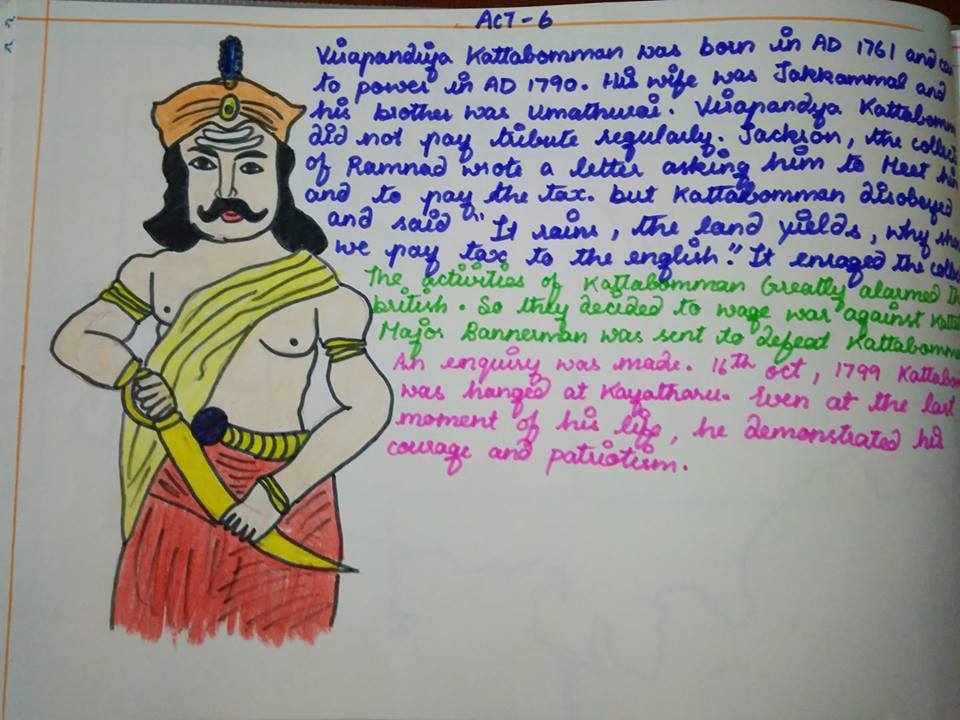 Act - 6
Virapandiya Kattabomman was born in AD 1761 and
to power in AD 1790. His wife was Jakkammal and
his brother was Umathurai. Virapandya
did not pay tribute regularly. Jackson, the
of Ramnad wrote a letter asking him to Meet him
and to pay the tax. but Kattabomman disobeyed
and said "It rains, the land yields, why
we pay tax to the english." It enraged the
The activities of Kattabomman Greatly alarmed
british. So they decided to wage war against
Major Bannerman was sent to defeat
An enquiry was made. 16th oct, 1799
was hanged at Kayatharu. Even at the last
moment of his life, he demonstrated his
courage and patriotism.